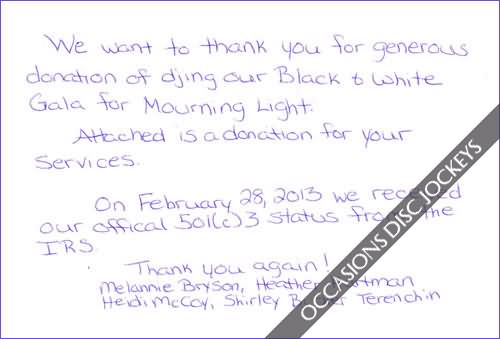 We want to thank you for generous
donation of djing our Black & White
Gala for Mourning Light.
Attached is a donation for your
Services.
On February 28, 2013 we
our offical 501(c)3 Status the
IRS.
Thank you again!
Melannie Bryson,
Heidi McCoy, Shirley Terenchin
OCCASIONS DISC JOCKEYS